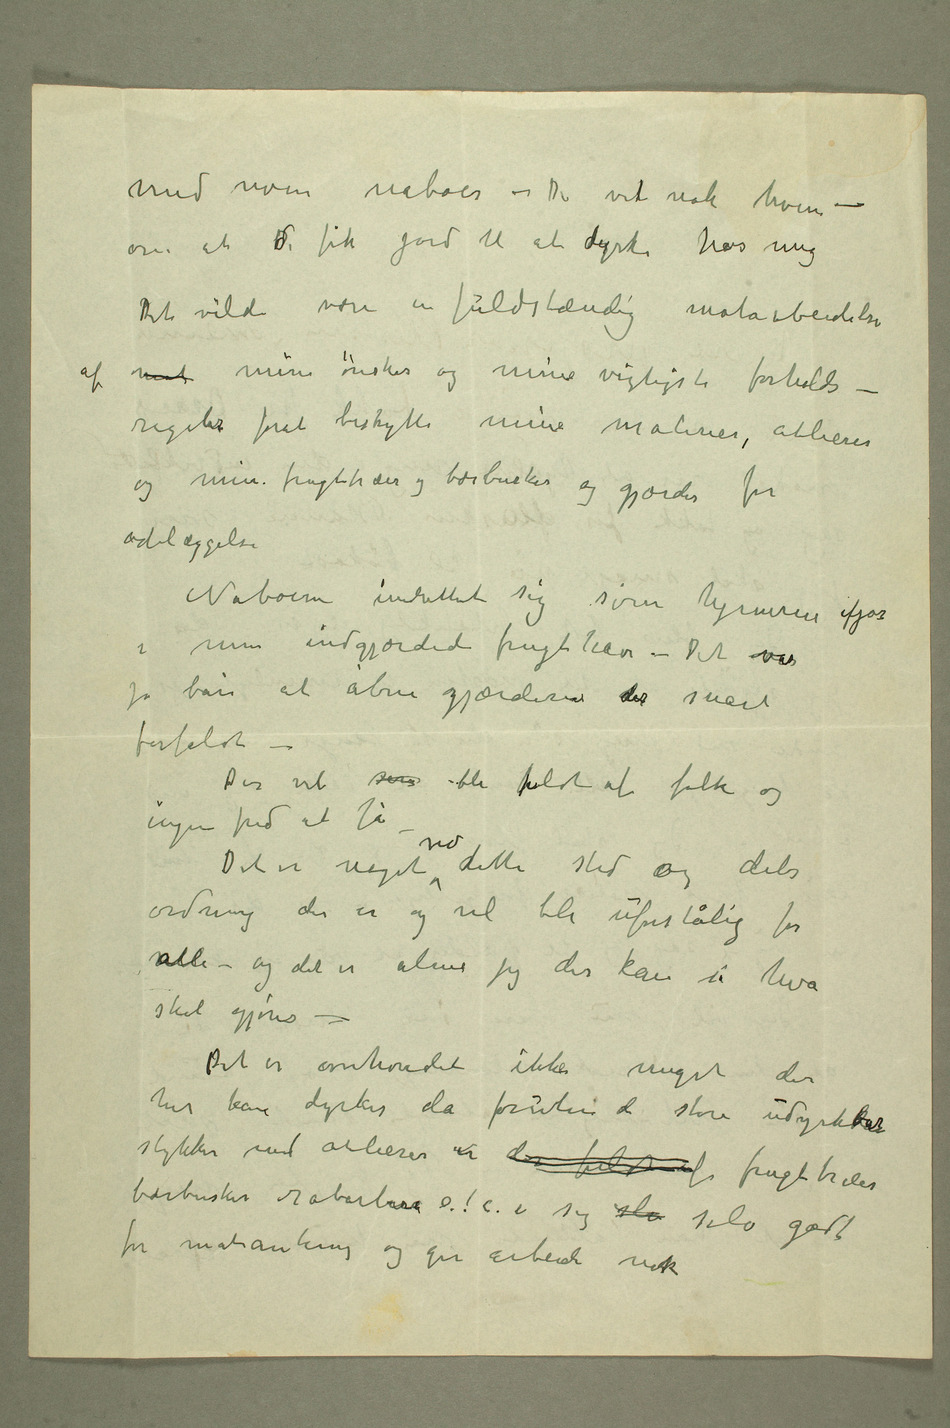 med noen naboer – De vet nok hvem –
om at De fik jord til at dyrke hos mig
Det vilde være en fuldstændig motarbeidelse
af mot mine ønsker og mine vigtigste forholds –
regeler forat beskytte mine malerier, atelierer
og mine frugttræer og bærbusker og gjærder for
ødelæggelse
Naboerne indrettet sig som hjemme ifjor
i min indgjærdede frugthave – Det var
jo bare at åbne gjærderne der snart
forfaldt –
Der vil som bli fuldt af folk og
ingen fred at få –
Det er noget ved dette sted og dets
ordning der er og vil bli uforståelig for
alle – og det er alene jeg der kan si hva
skal gjøres –
Det er overhovedet ikke meget der
her kan dyrkes da foruten de store udyrkbar
stykker med atelierer er der fuldt af frugttræer
bærbusker rabarbra e.t.c. i sig sle selv godt
for matranking og gir arbeide nok